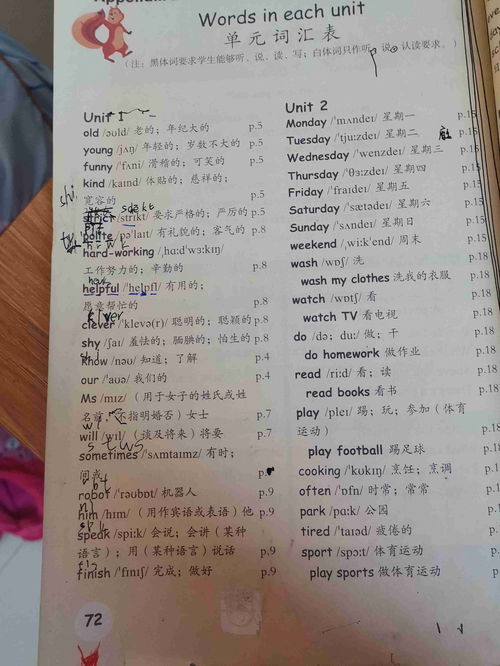 Words in each unit
单元词汇表
（注：黑体词要求学生能够听、说、读、写；白体词只作听、说、认读要求。）
Unit 1
old /əʊld/ 老的；年纪大的 p.5
young /jʌŋ/ 年轻的；岁数不大的 p.5
funny /ˈfʌni/ 滑稽的；可笑的 p.5
kind /kaɪnd/ 体贴的；慈祥的；
宽容的 p.5
strict /strɪkt/ 要求严格的；严厉的 p.5
polite /pəˈlaɪt/ 有礼貌的；客气的 p.8
hard-working /ˌhɑːdˈwɜːkɪŋ/
工作努力的；辛勤的 p.8
helpful /ˈhelpfl/ 有用的；
愿意帮忙的 p.8
clever /ˈklevə(r)/ 聪明的；聪颖的 p.8
shy /ʃaɪ/ 羞怯的；腼腆的；怕生的 p.8
know /nəʊ/ 知道；了解 p.4
our /ˈaʊə/ 我们的 p.4
Ms /mɪz/ （用于女子的姓氏或姓
名前，不指明婚否）女士 p.7
will /wɪl/ （谈及将来）将要 p.7
sometimes /ˈsʌmtaɪmz/ 有时；
间或 p.
robot /ˈrəʊbɒt/ 机器人 p.9
him /hɪm/ （用作宾语或表语）他 p.9
speak /spiːk/ 会说；会讲（某种
语言）；用（某种语言）说话 p.9
finish /ˈfɪnɪʃ/ 完成；做好 p.9
72
Unit 2
Monday /ˈmʌndeɪ/ 星期一 p.15
Tuesday /ˈtjuːzdeɪ/ 星期二 p.15
Wednesday /ˈwenzdeɪ/ 星期三 p.15
Thursday /ˈθɜːzdeɪ/ 星期四 p.15
Friday /ˈfraɪdeɪ/ 星期五 p.15
Saturday /ˈsætədeɪ/ 星期六 p.15
Sunday /ˈsʌndeɪ/ 星期日 p.15
weekend /ˌwiːkˈend/ 周末 p.15
wash /wɒʃ/ 洗 p.18
wash my clothes 洗我的衣服 p.18
watch /wɒtʃ/ 看 p.18
watch TV 看电视 p.18
do /də; duː/ 做；干 p.18
do homework 做作业 p.18
read /riːd/ 看；读 p.18
read books 看书 p.18
play /pleɪ/ 踢；玩；参加（体育
运动） p.18
play football 踢足球 p.18
cooking /ˈkʊkɪŋ/ 烹饪；烹调
often /ˈɒfn/ 时常；常常
park /pɑːk/ 公园
tired /ˈtaɪəd/ 疲倦的
sport /spɔːt/ 体育运动
play sports 做体育运动